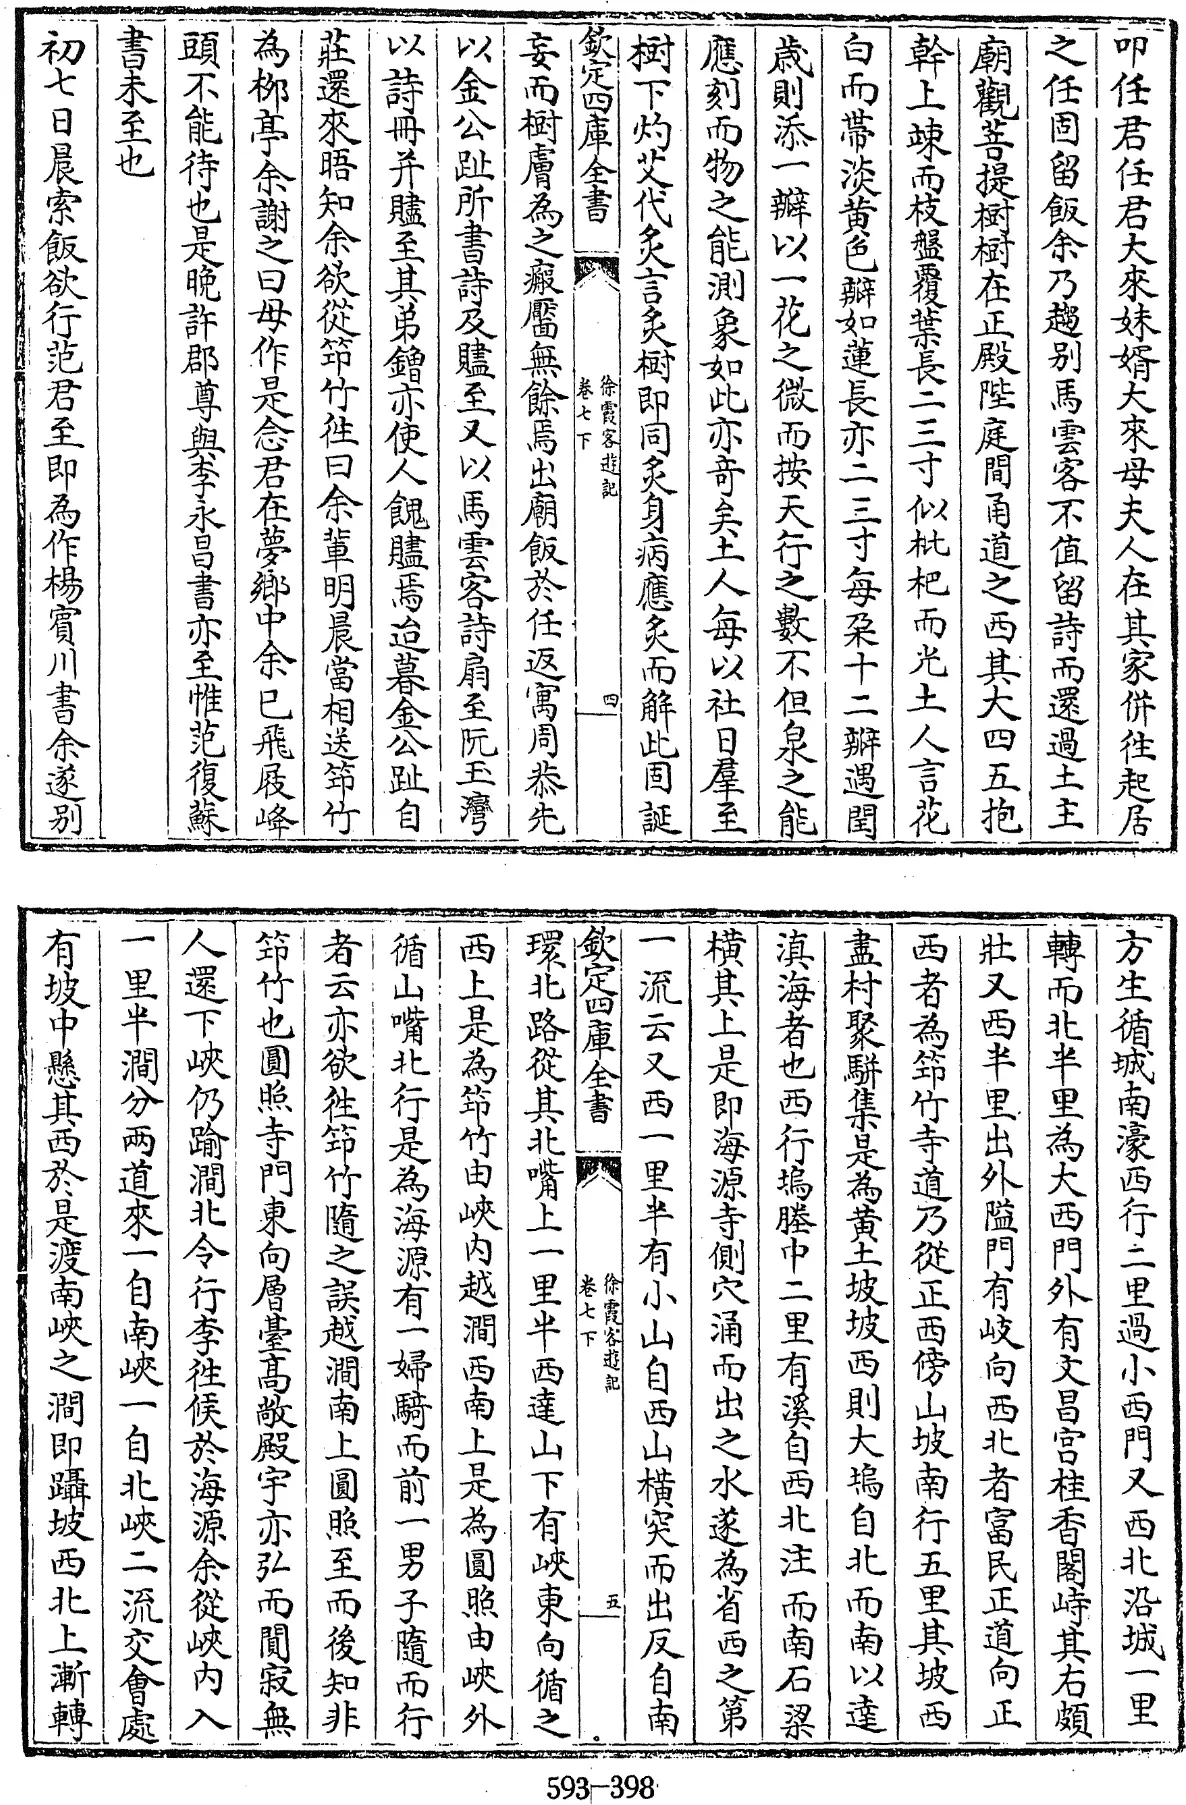 叩任君任君大來妹婿大來母夫人在其家併往起居
之任固留飯余乃趨别馬雲客不值留詩而還過土主
廟觀菩提樹樹在正殿陛庭間甬道之西其大四五抱
幹上竦而枝盤覆葉長二三寸似枇杷而光土人言花
白而帶淡黄色瓣如蓮長亦二三寸每朶十二瓣遇閏
歲則添一瓣以一花之微而按天行之數不但泉之能
應刻而物之能測象如此亦竒矣土人每以社日羣至
樹下灼艾代炙言炙樹即同炙身病應炙而解此固誕
欽定四庫全書
徐霞客遊記
卷七下
四
妄而樹膚為之瘢靨無餘焉出廟飯於任返寓周恭先
以金公趾所書詩及贐至又以馬雲客詩扇至阮玉灣
以詩冊并贐至其弟鐕亦使人餽贐焉迨暮金公趾自
莊還來晤知余欲從筇竹徃曰余輩明晨當相送筇竹
為柳亭余謝之曰毋作是念君在夢鄉中余已飛屐峰
頭不能待也是晚許郡尊與李永昌書亦至惟范復蘇
書未至也
初七日晨索飯欲行范君至即為作楊賓川書余遂别
方生循城南濠西行二里過小西門又西北沿城一里
轉而北半里為大西門外有文昌宫桂香閣峙其右頗
壯又西半里出外隘門有岐向西北者富民正道向正
西者為筇竹寺道乃從正西傍山坡南行五里其坡西
盡村聚駢集是為黄土坡坡西則大塢自北而南以達
滇海者也西行塢塍中二里有溪自西北注而南石梁
横其上是即海源寺側穴涌而出之水遂為省西之第
一流云又西一里半有小山自西山横突而出反自南
欽定四庫全書
徐霞客遊記
卷七下
五
環北路從其北嘴上一里半西達山下有峽東向循之
西上是為筇竹由峽内越澗西南上是為圓照由峽外
循山嘴北行是為海源有一婦騎而前一男子隨而行
者云亦欲徃筇竹隨之誤越澗南上圓照至而後知非
筇竹也圓照寺門東向層臺髙敞殿宇亦弘而閴寂無
人還下峽仍踰澗北令行李徃候於海源余從峽内入
一里半澗分兩道來一自南峽一自北峽二流交會處
有坡中懸其西於是渡南峽之澗即躡坡西北上漸轉
593-398